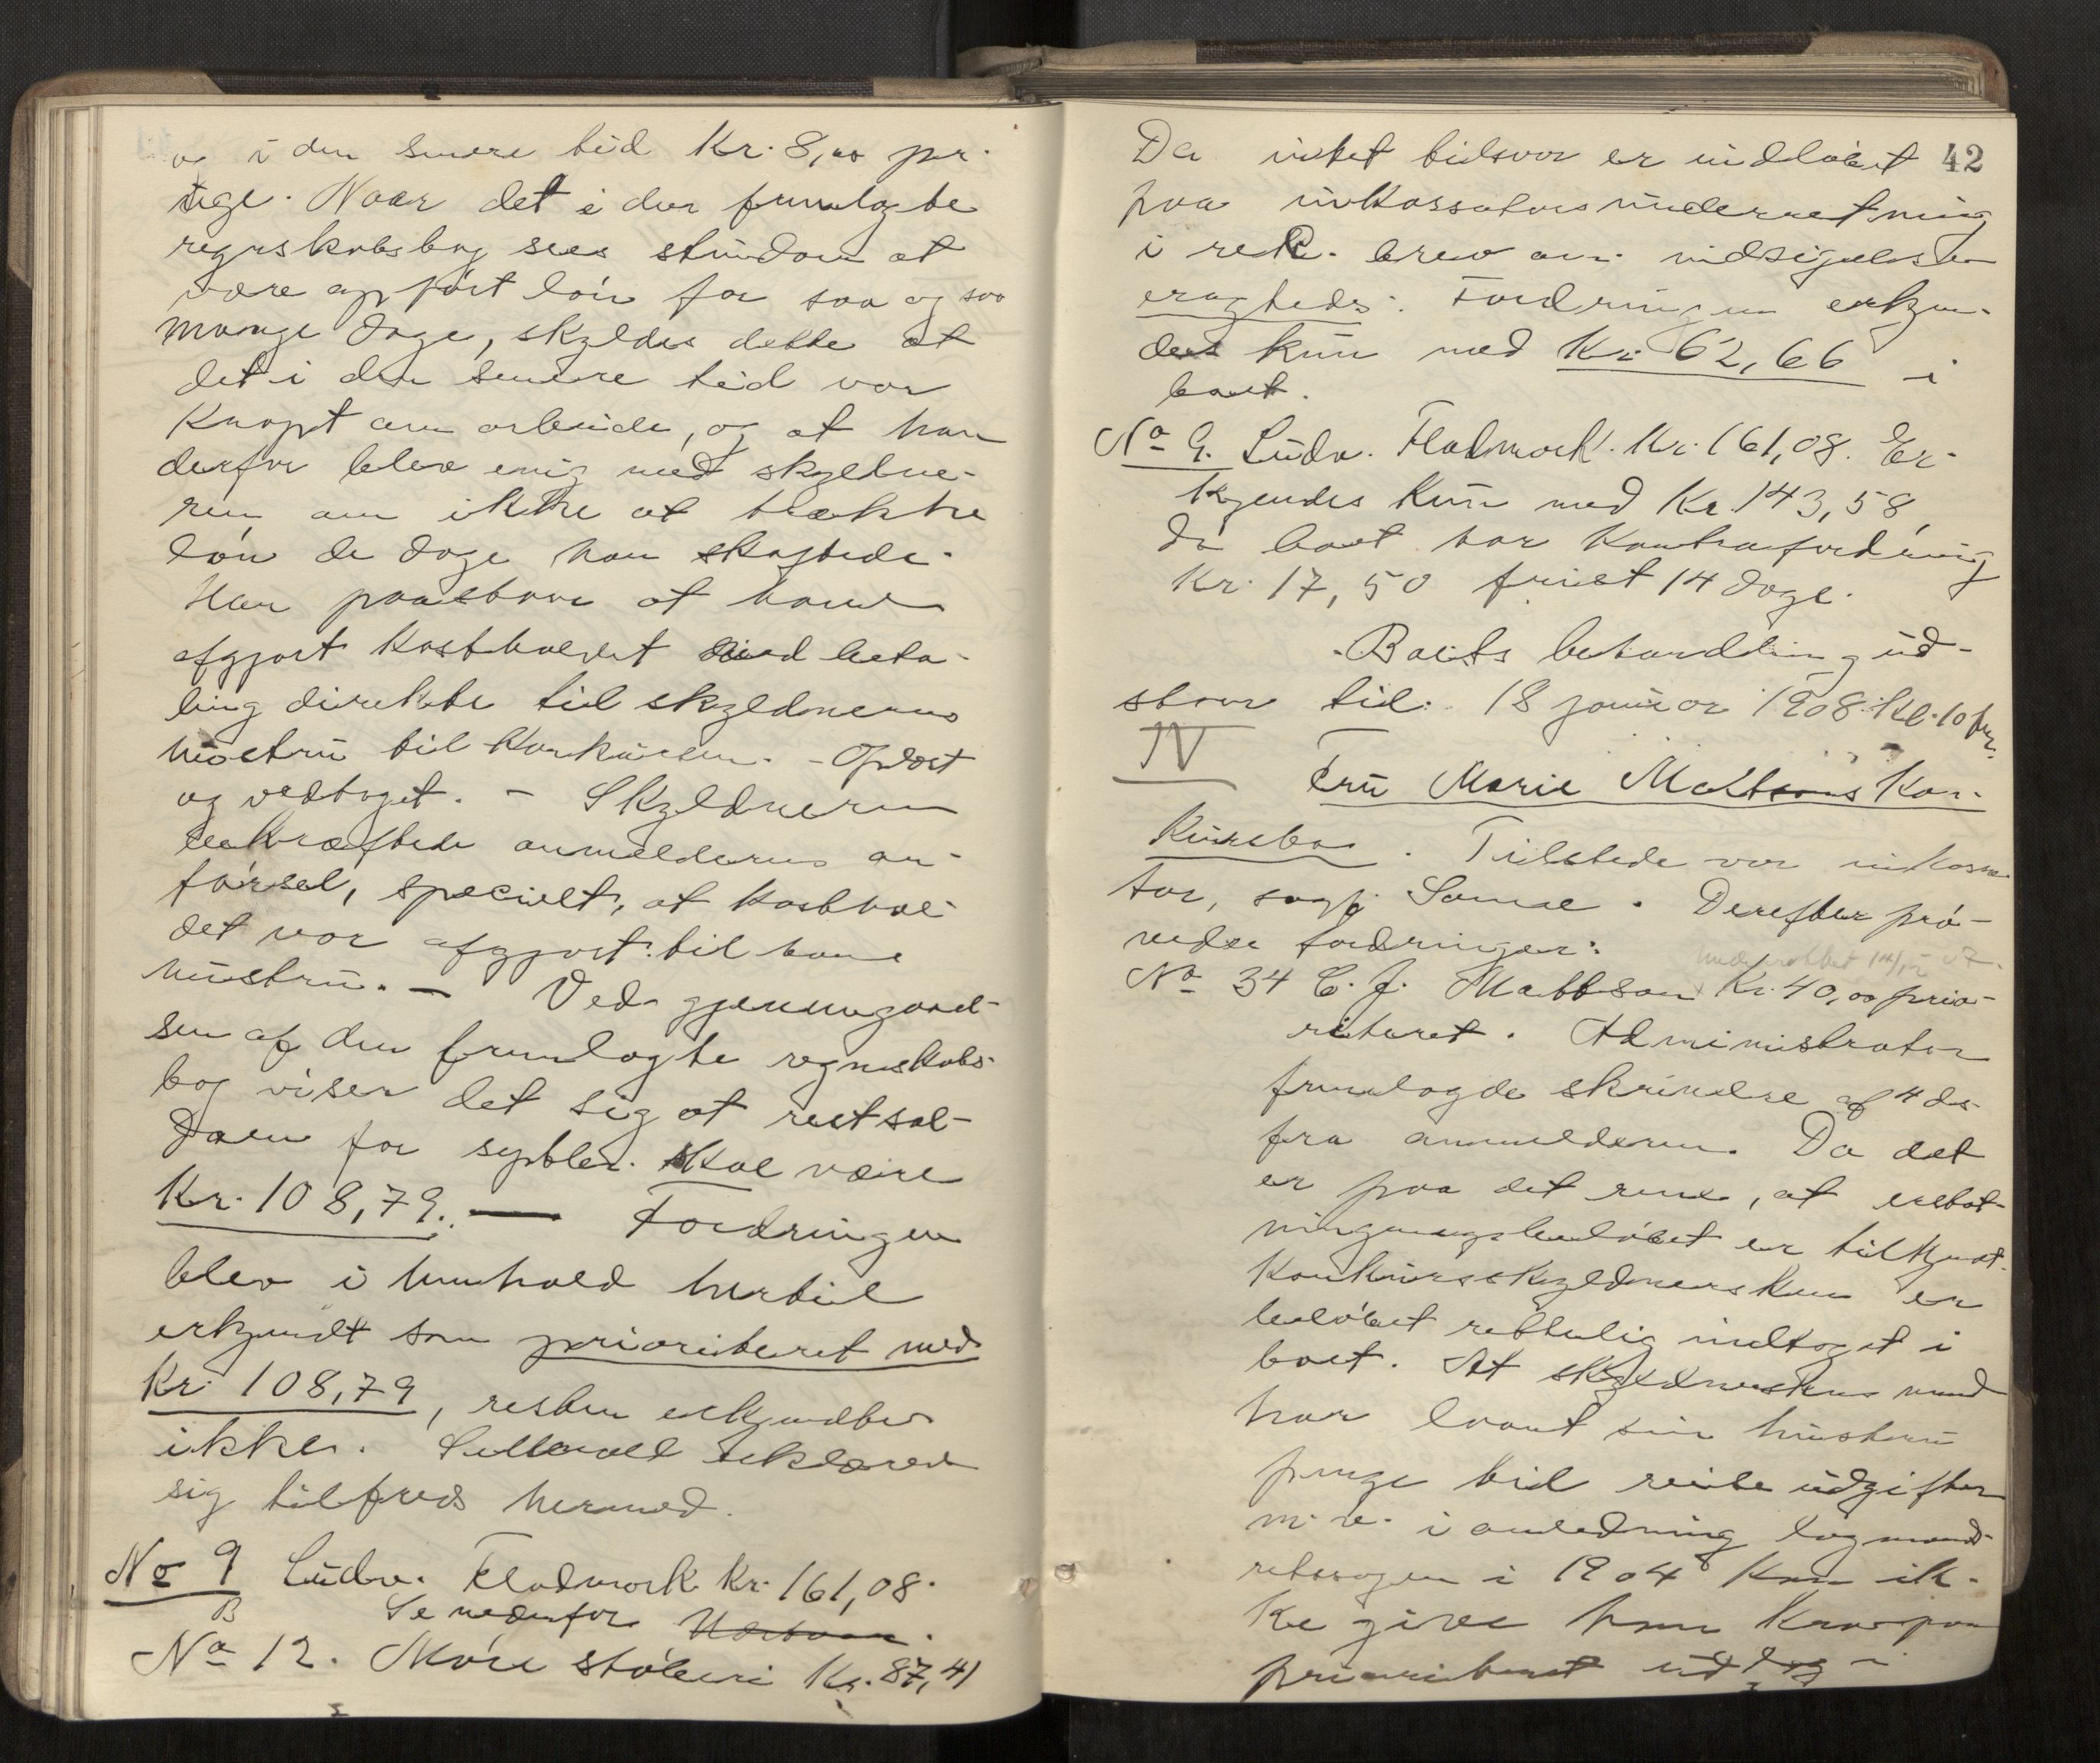 og i den senere tid Kr. 8,00 pr.
uge. Naar det i den fremlagte
regnskabsbog sees stundom at
være opført løn for saa og saa
mange dage, skyldes dette at
det i den senere tid var
knapt om arbeide, og at han
derfor blev enig med skyldne-
ren om ikke at trække
løn de dage han skoftede.
Han paastaar at have
afgjort kostholdet ved beta-
ling direkte til skyldnerens
hustru til konkursen. - Oplæst
og vedtaget. - Skyldneren
bekræftede anmelderens an-
førsel, specielt, at kosthol-
det var afgjort til hans
hustru. - Ved gjennemgaael-
sen af den fremlagte regnskabs-
bog viser det sig at restsal-
doen for skal være
Kr. 108,79. — Fordringen
blev i henhold hertil
erkjendt som prioriteret med
Kr. 108,79, resten erkjendtes
ikke. erklæred
sig tilfreds hermed.
No 9 Ludv. Fladmark Kr. 161,08.
B Se nedenfor
No 12. Møre støberi Kr. 87,41
42
Da intet tilsvar er indløbet
paa inkassators underretning
i rek. brev om indsigelsen
eragtedes: Fordringen erkjen-
des kun med Kr. 62,66 i
boet.
No 9. Ludv. Fladmark. Kr. 161,08. Er-
kjendes kun med Kr. 143,58,
da boet har kontrafordring
Kr. 17,50 frist 14 dage.
Boets behandling ud-
staar til 18 januar 1908 kl. 10 fm.
IV
Fru Marie Mattsons kon-
kursbo. Tilstede var inkassa-
tor, sagf. . Derefter prø-
vedes fordringer:
underrettet 14/12 07.
No 34 C. J. Mattson Kr. 40,00 prio-
riteret. Administrator
fremlagde skrivelse af 4 ds
fra anmelderen. Da det
er paa det rene, at erstat-
ningsbeløbet er tilkjendt
konkursskyldnersken er
beløbet rettelig indtaget i
boet. At skyldnerskens mand
har laant sin hustru
penge til reiseudgifter
m. v. i anledning lagmands-
retssagen i 1904 kan ik-
ke give ham krav paa
prioriteret udlæg i